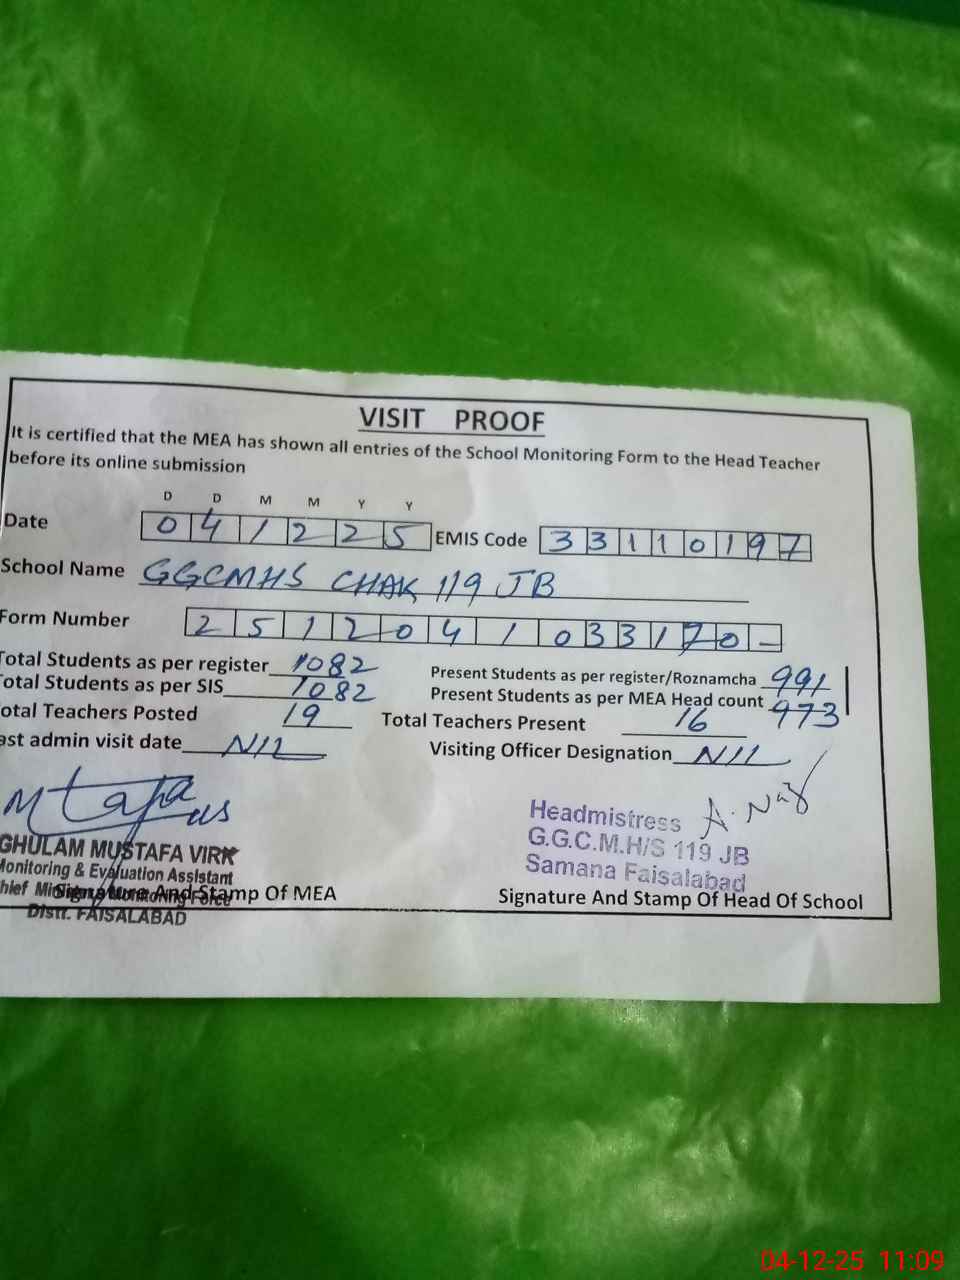 VISIT PROOF
It is certified that the MEA has shown all entries of the School Monitoring Form to the Head Teacher
before its online submission
D D M M Y Y
Date 0 4 1 2 2 5 EMIS Code 3 3 1 1 0 1 9 7
School Name GGCMHS CHAK 119 JB
Form Number 2 5 1 2 0 4 1 0 3 3 1 7 0 -
Total Students as per register 1082 Present Students as per register/Roznamcha 991
Total Students as per SIS 1082 Present Students as per MEA Head count 973
otal Teachers Posted 19 Total Teachers Present 16
ast admin visit date NIL Visiting Officer Designation NIL
Mtafa A. Naz
GHULAM MUSTAFA VIRK Headmistress
Monitoring & Evaluation Assistant G.G.C.M.H/S 119 JB
hief Monitoring Force Samana Faisalabad
Signature And Stamp Of MEA Signature And Stamp Of Head Of School
Distt. FAISALABAD
04-12-25 11:09